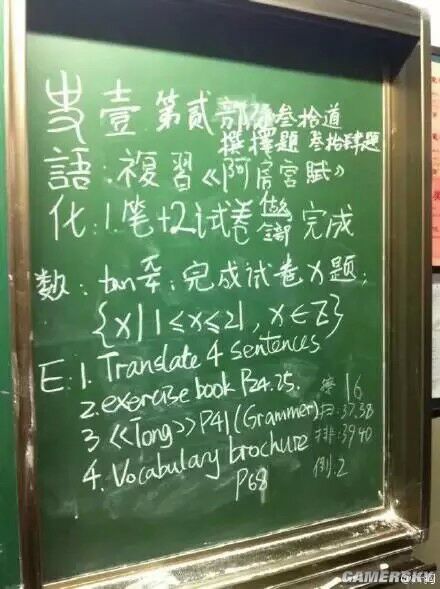 史 壹 第貳部份叁拾道
選擇題 叁拾肆題
語:複習《阿房宮賦》
化:1.笔+2试卷 做 全部 完成
数:tan π/4:完成试卷x题,
{x|1≤x≤21, x∈Z}
E:1. Translate 4 sentences
2. exercise book P24.25.
3 《Tong》P41(Grammer)
4. Vocabulary brochure
P68
擦 16
扫:37.38
排:39.40
倒:2
GAMERSKY